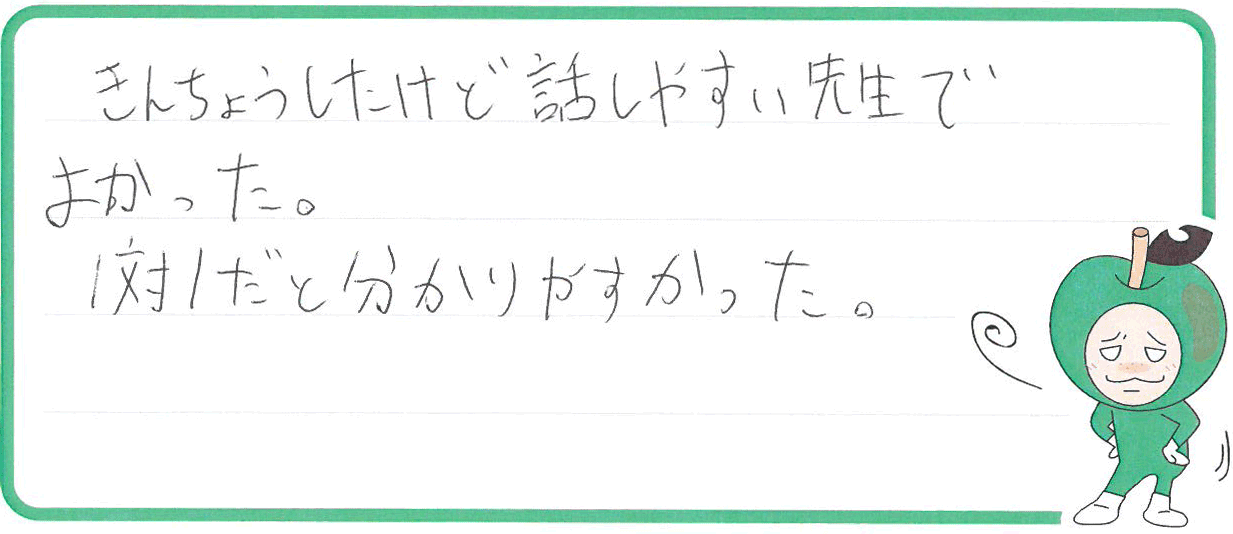 きんちょうしたけど話しやすい先生で
よかった。
1対1だと分かりやすかった。